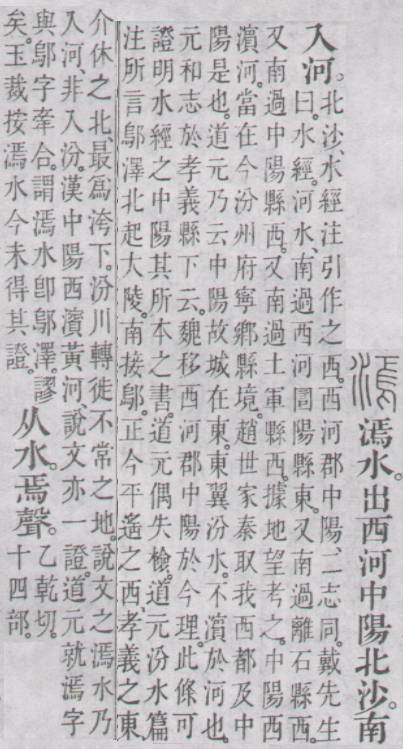 漹 漹水。出西河中陽北沙。南
入河。
北沙、水經注引作之西。西河郡中陽、二志同。戴先生
曰。水經。河水、南過西河圁陽縣東。又南過離石縣西。
又南過中陽縣西。又南過土軍縣西。據地望考之。中陽西
濱河。當在今汾州府寧鄉縣境。趙世家秦取我西都及中
陽是也。道元乃云中陽故城在東。東翼汾水。不濱於河也。
元和志於孝義縣下云。魏移西河郡中陽於今理。此條可
證明水經之中陽其所本之書。道元偶失檢。道元汾水篇
注所言鄔澤北起大陵。南接鄔。正今平遙之西、孝義之東
介休之北。最爲洿下。汾川轉徙不常之地。說文之漹水乃
入河非入汾。漢中陽西濱黃河。說文亦一證。道元就漹字
與鄔字牽合。謂漹水卽鄔澤。謬
矣。玉裁按漹水今未得其證。
从水。焉聲。
乙乾切。
十四部。